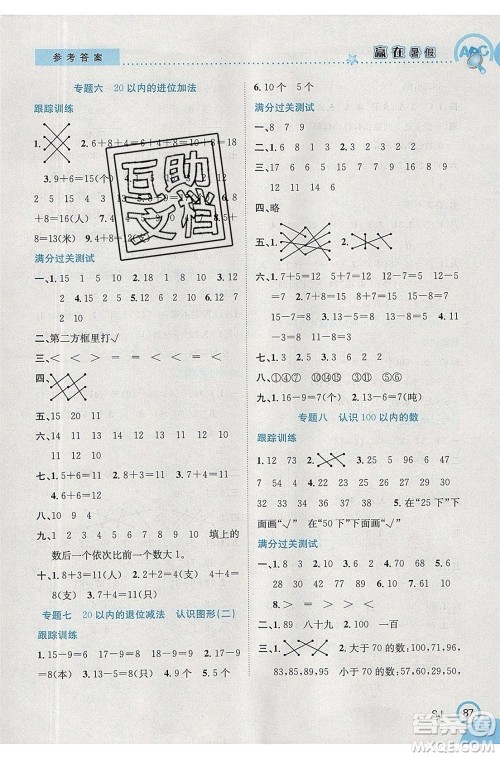 参考答案
赢在暑假
ABC
专题六 20以内的进位加法
跟踪训练
1.
2.6+8=14
3.9+6=15(个)
8+9=17(支) 7+
8=15(米) 9.4+8=12(支)
满分过关测试
一、1.15 12 2.19 1 3.18 15 4.13 12
2 10 5.15 16 9 6.10 5 7.12
二、第二方框里打√
三、< = > = < = < =
四、
五、15 20 11
六、14 11 11 11 12 15 12 16
七、1.5+6=11 2.9+4=13
3.8+8=16(元) 4.8+5=13(个)
八、9 10 4
九、9 10 11 12 11 12 填上的
数后一个依次比前一个数大1。
十、1.6+5=11 2.8+7=15
专题七 20以内的退位减法 认识图形(二)
跟踪训练
1.15-9=6 17-9=8 18-9=9 2.13
-5=8(本) 3.15-7=8(只) 4.11-8=3(只)
6.10个 5个
满分过关测试
一、8 7 9
二、13 17 15 7 8 9 16 9 6
12 11 14 6
四、略
五、
六、7+5=12 5+7=12 12-5=7
12-7=5 7+8=15 8+7=15 15-8=7
15-7=8
七、1.8 2.9 3.3 6 7 8 2
八、①④⑦ ①③④⑥ ②⑤
九、1.16-9=7(个) 2.13-6=7(吨)
专题八 认识100以内的数
跟踪训练
一、1.72 34 2. 3.27 28 30
32 33 34 35 37 4.在“25下”下
面画“√” 在“50下”下面画“√”
满分过关测试
一、1.3 2 32 2.68 3.100 4.91
5.6 6 7.90 8.27 86
二、> < = < > >
三、1.89 八十九 2.90 九十
四、1. 2.大于70的数:100,71,96,
83,85,89,95 小于70的数:60,34,56
SJ
87
互助文档
答案圈
MXQE.COM